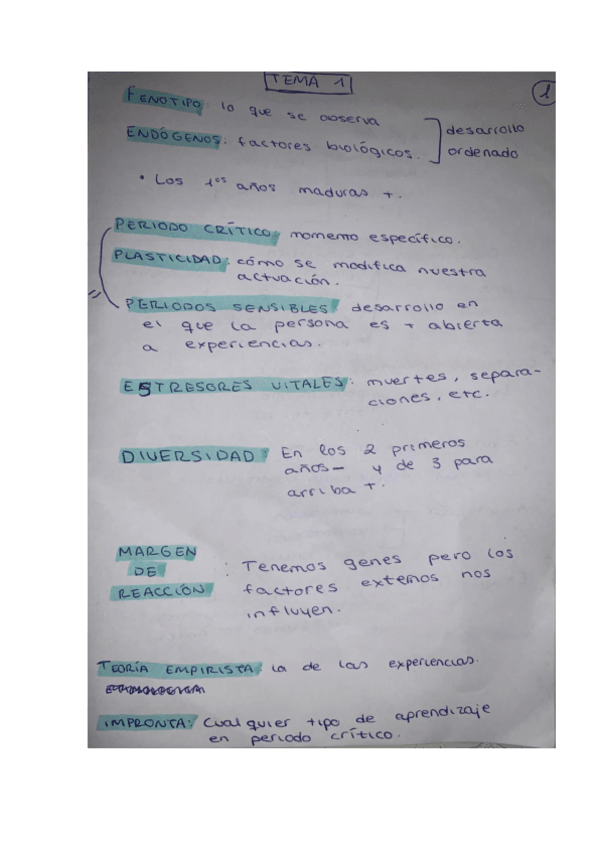 TEMA 1
1
FENOTIPO: lo que se observa
ENDÓGENOS: factores biológicos.
desarrollo
ordenado
• Los 1os años maduras +.
PERIODO CRÍTICO: momento específico.
PLASTICIDAD: cómo se modifica nuestra
actuación.
=
PERIODOS SENSIBLES: desarrollo en
el que la persona es + abierta
a experiencias.
ESTRESORES VITALES: muertes, separa-
ciones, etc.
DIVERSIDAD: En los 2 primeros
años - y de 3 para
arriba +.
MARGEN
DE
REACCIÓN
: Tenemos genes pero los
factores externos nos
influyen.
TEORÍA EMPIRISTA: la de las experiencias.
IMPRONTA: Cualquier tipo de aprendizaje
en periodo crítico.